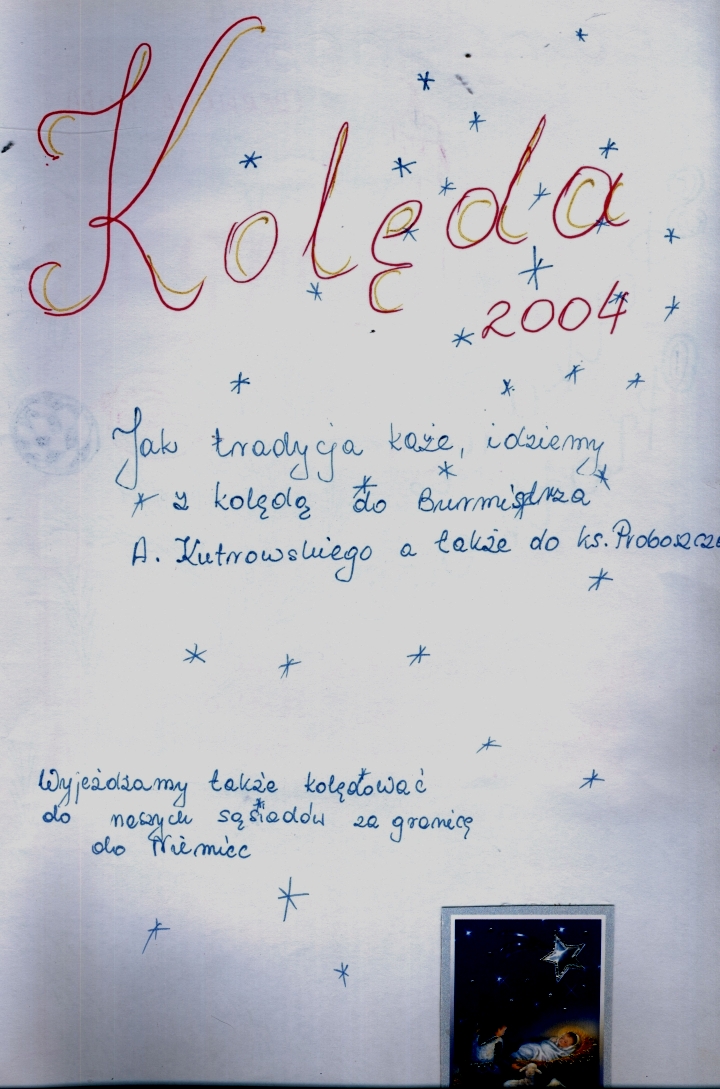 Kolęda
2004
Jak tradycja każe, idziemy
z kolędą do Burmistrza
A. Kutrowskiego a także do ks. Proboszcza
Wyjeżdżamy także kolędować
do naszych sąsiadów za granicę
do Niemiec